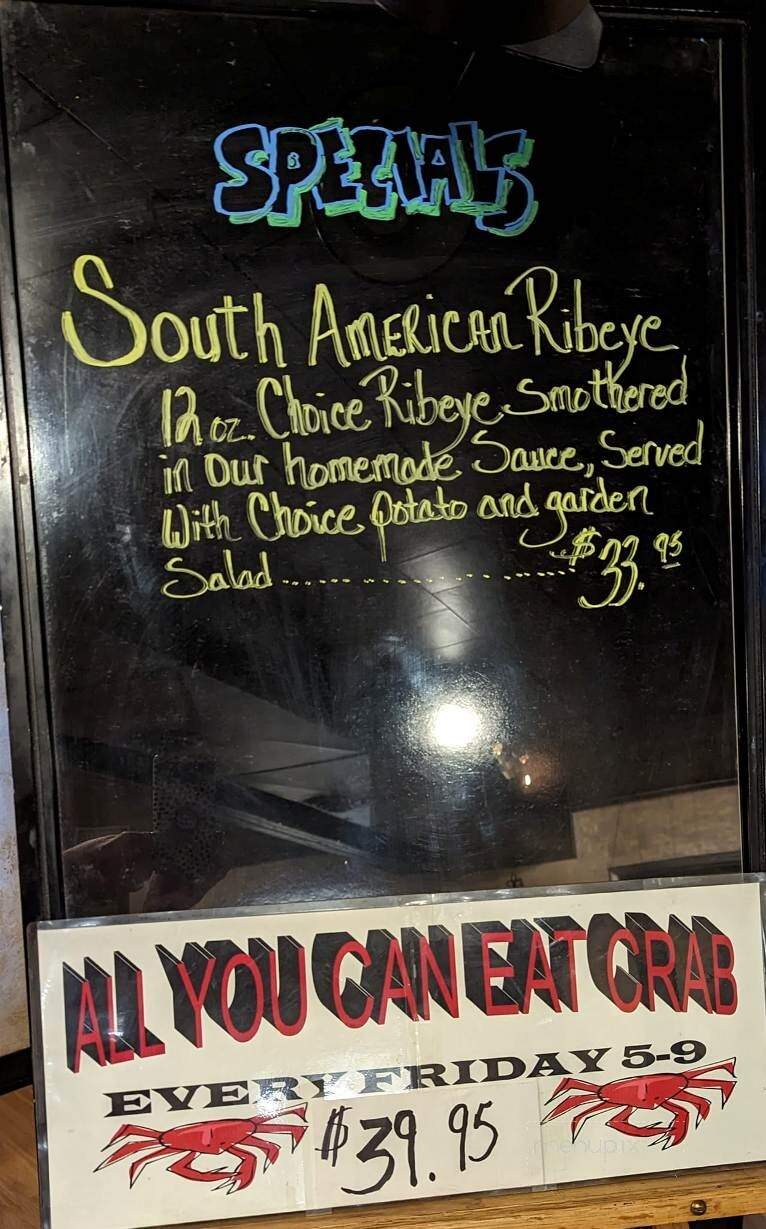 SPECIALS
South AMERICAn Ribeye
12 oz. Choice Ribeye Smothered
in our homemade Sauce, Served
With Choice potato and garden
Salad .................... $33.95
ALL YOU CAN EAT CRAB
EVERY FRIDAY 5-9
$39.95
menupix